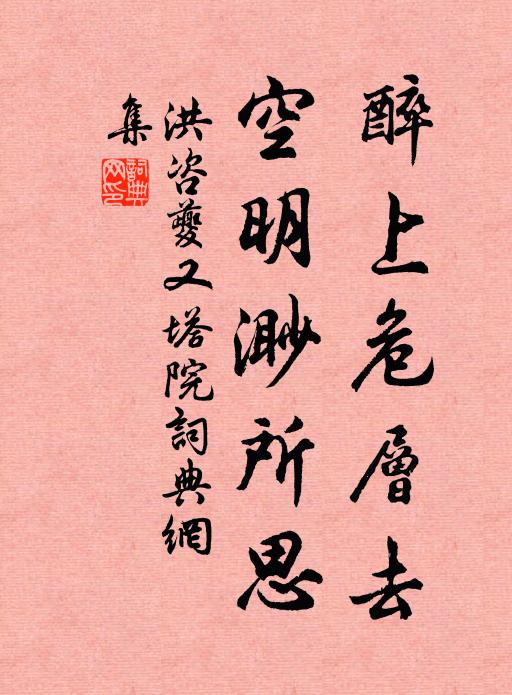 醉上危層去
空明渺所思
洪咨夔又塔院詞典網
集
詞典
网印